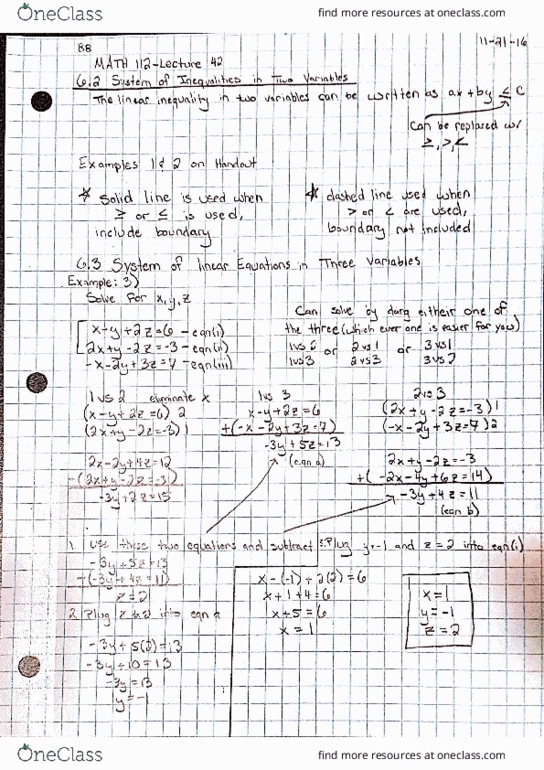 OneClass
find more resources at oneclass.com
B8
11-21-16
MATH 112-Lecture 42
6.2 System of Inequalities in Two Variables
The linear inequality in two variables can be written as ax+by ≤ c
Can be replaced w/
≥,>,<
Examples 1 & 2 on Handout
* Solid line is used when
≥ or ≤ is used,
include boundary
* dashed line used when
> or < are used,
boundary not included
6.3 System of linear Equations in Three Variables
Example: 3)
Solve for x,y,z
x-y+2z=6 -eqn(i)
2x+y-2z=-3 -eqn(ii)
-x-2y+3z=7 -eqn(iii)
Can solve by doing either one of
the three (which ever one is easier for you)
1vs2 or 2vs1 or 3vs1
1vs3 2vs3 3vs2
1vs2 eliminate x
(x-y+2z=6) 2
(2x+y-2z=-3) 1
2x-2y+4z=12
-(2x+y-2z=-3)
-3y+2z=15
1vs 3
x-y+2z=6
+(-x-2y+3z=7)
-3y+5z=13
(eqn a)
2vs3
(2x+y-2z=-3) 1
(-x-2y+3z=7) 2
2x+y-2z=-3
+(-2x-4y+6z=14)
-3y+4z=11
(eqn b)
1. Use these two equations and subtract
-3y+5z=13
-(-3y+4z=11)
z=2
2. Plug z=2 into eqn a
-3y+5(2)=13
-3y+10=13
-3y=13
y=-1
3. Plug y=-1 and z=2 into eqn(i)
x-(-1)+2(2)=6
x+1+4=6
x+5=6
x=1
x=1
y=-1
z=2
OneClass
find more resources at oneclass.com